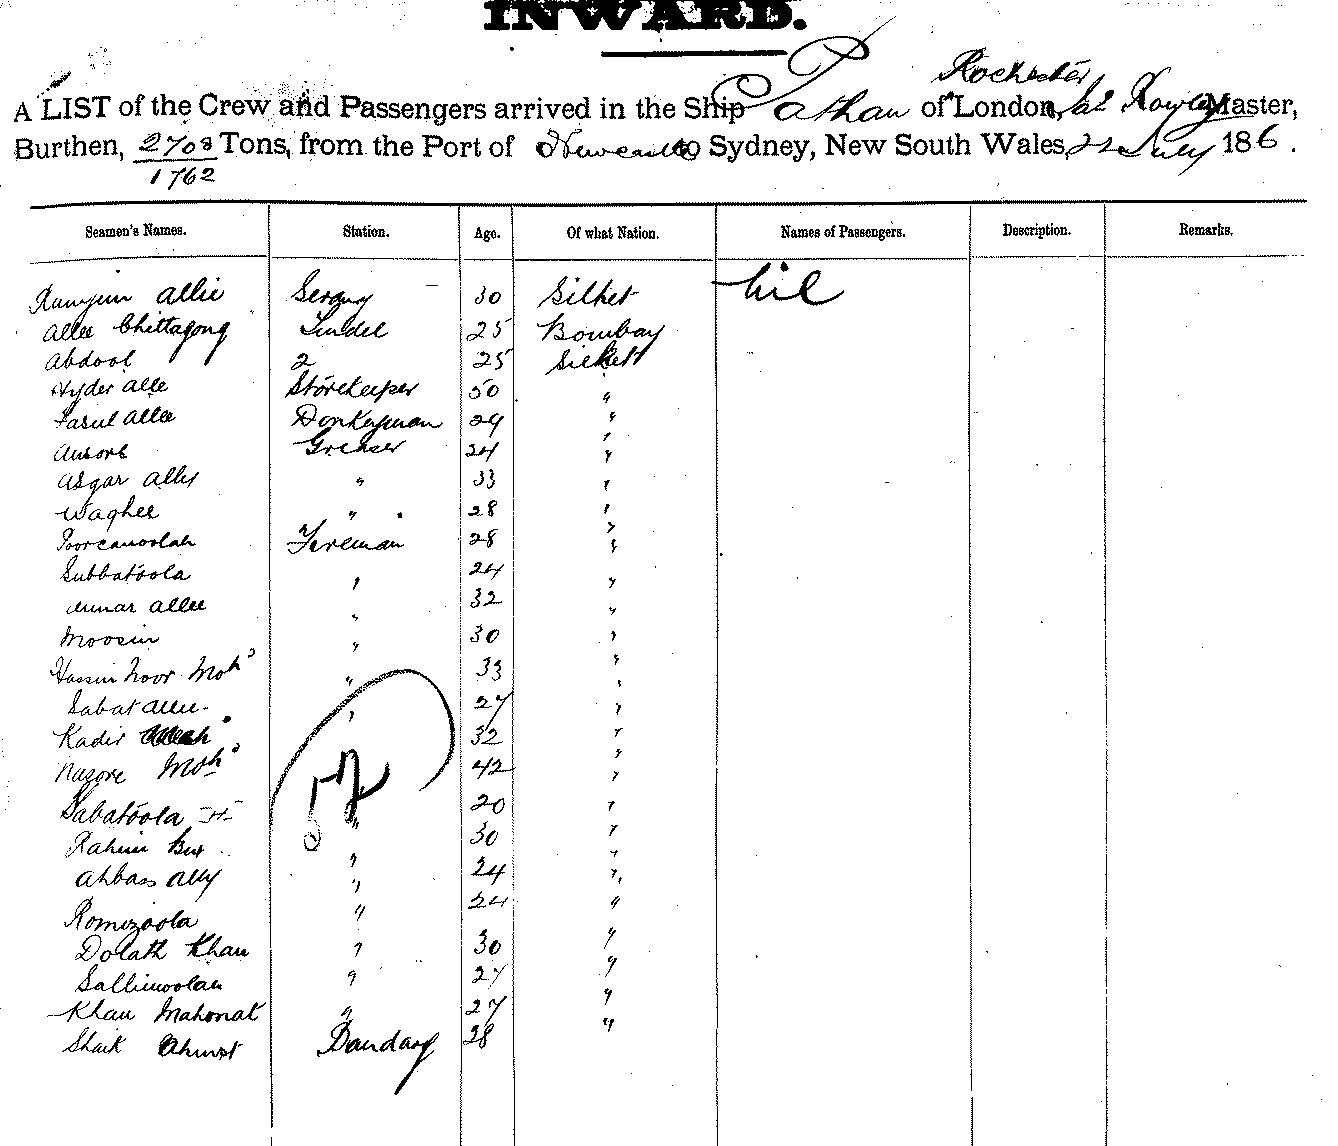 INWARD.
Rochester
A LIST of the Crew and Passengers arrived in the Ship Pathan of London, Jas Rowley Master,
Burthen, 2708 Tons, from the Port of Newcastle to Sydney, New South Wales, 22 July 1886.
1762
Seamen's Names. Station. Age. Of what Nation. Names of Passengers. Description. Remarks.
Allie Serang 30 Silhet Nil
Allee Chittagong Tindel 25 Bombay
Abdool 2 25 Silhett
Hyder Alle Storekeeper 50 "
Fasul Allee Donkeyman 29 "
Greaser 24 "
Asgar Ally " 33 "
Waghee " 28 "
Fireman 28 "
Subbatoola " 24 "
Allee " 32 "
Moosin " 30 "
Hassin Noor Moh'd " 33 "
Sabat Allee " 27 "
Kadir " 32 "
Nasore Moh'd 42 "
Sabatoola 20 "
Rahim Bux " 30 "
Abbass Ally " 24 "
Romizoola " 24 "
Dolath Khan " 30 "
Sallimoolah " 27 "
Khan Mahomat " 27 "
Shaik Ahmat Bandary 28 "